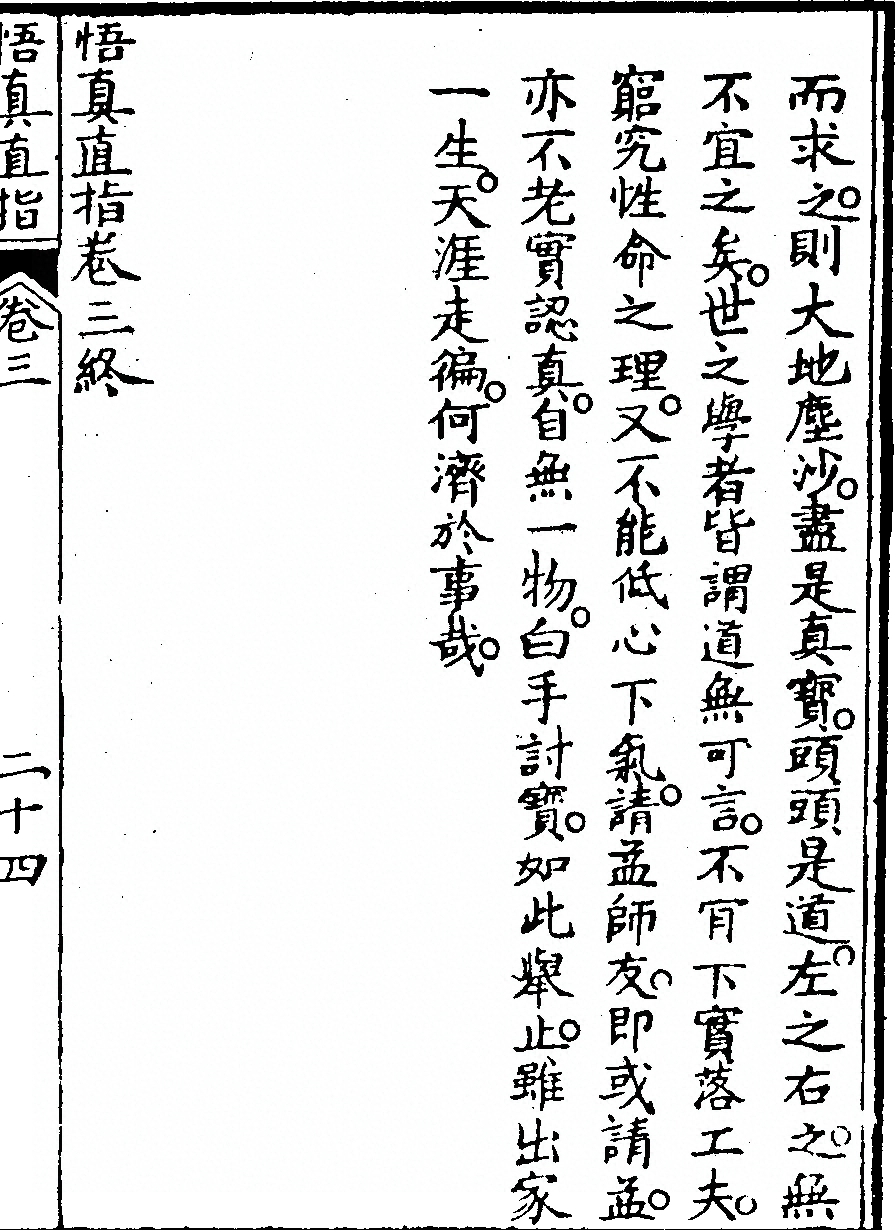 而求之。則大地塵沙。盡是真寶。頭頭是道。左之右之。無
不宜之矣。世之學者皆謂道無可言。不肯下實落工夫。
窮究性命之理。又不能低心下氣。請益師友。即或請益。
亦不老實認真。自無一物。白手討寶。如此舉止。雖出家
一生。天涯走徧。何濟於事哉。
悟真直指卷三終
悟真直指 卷三 二十四